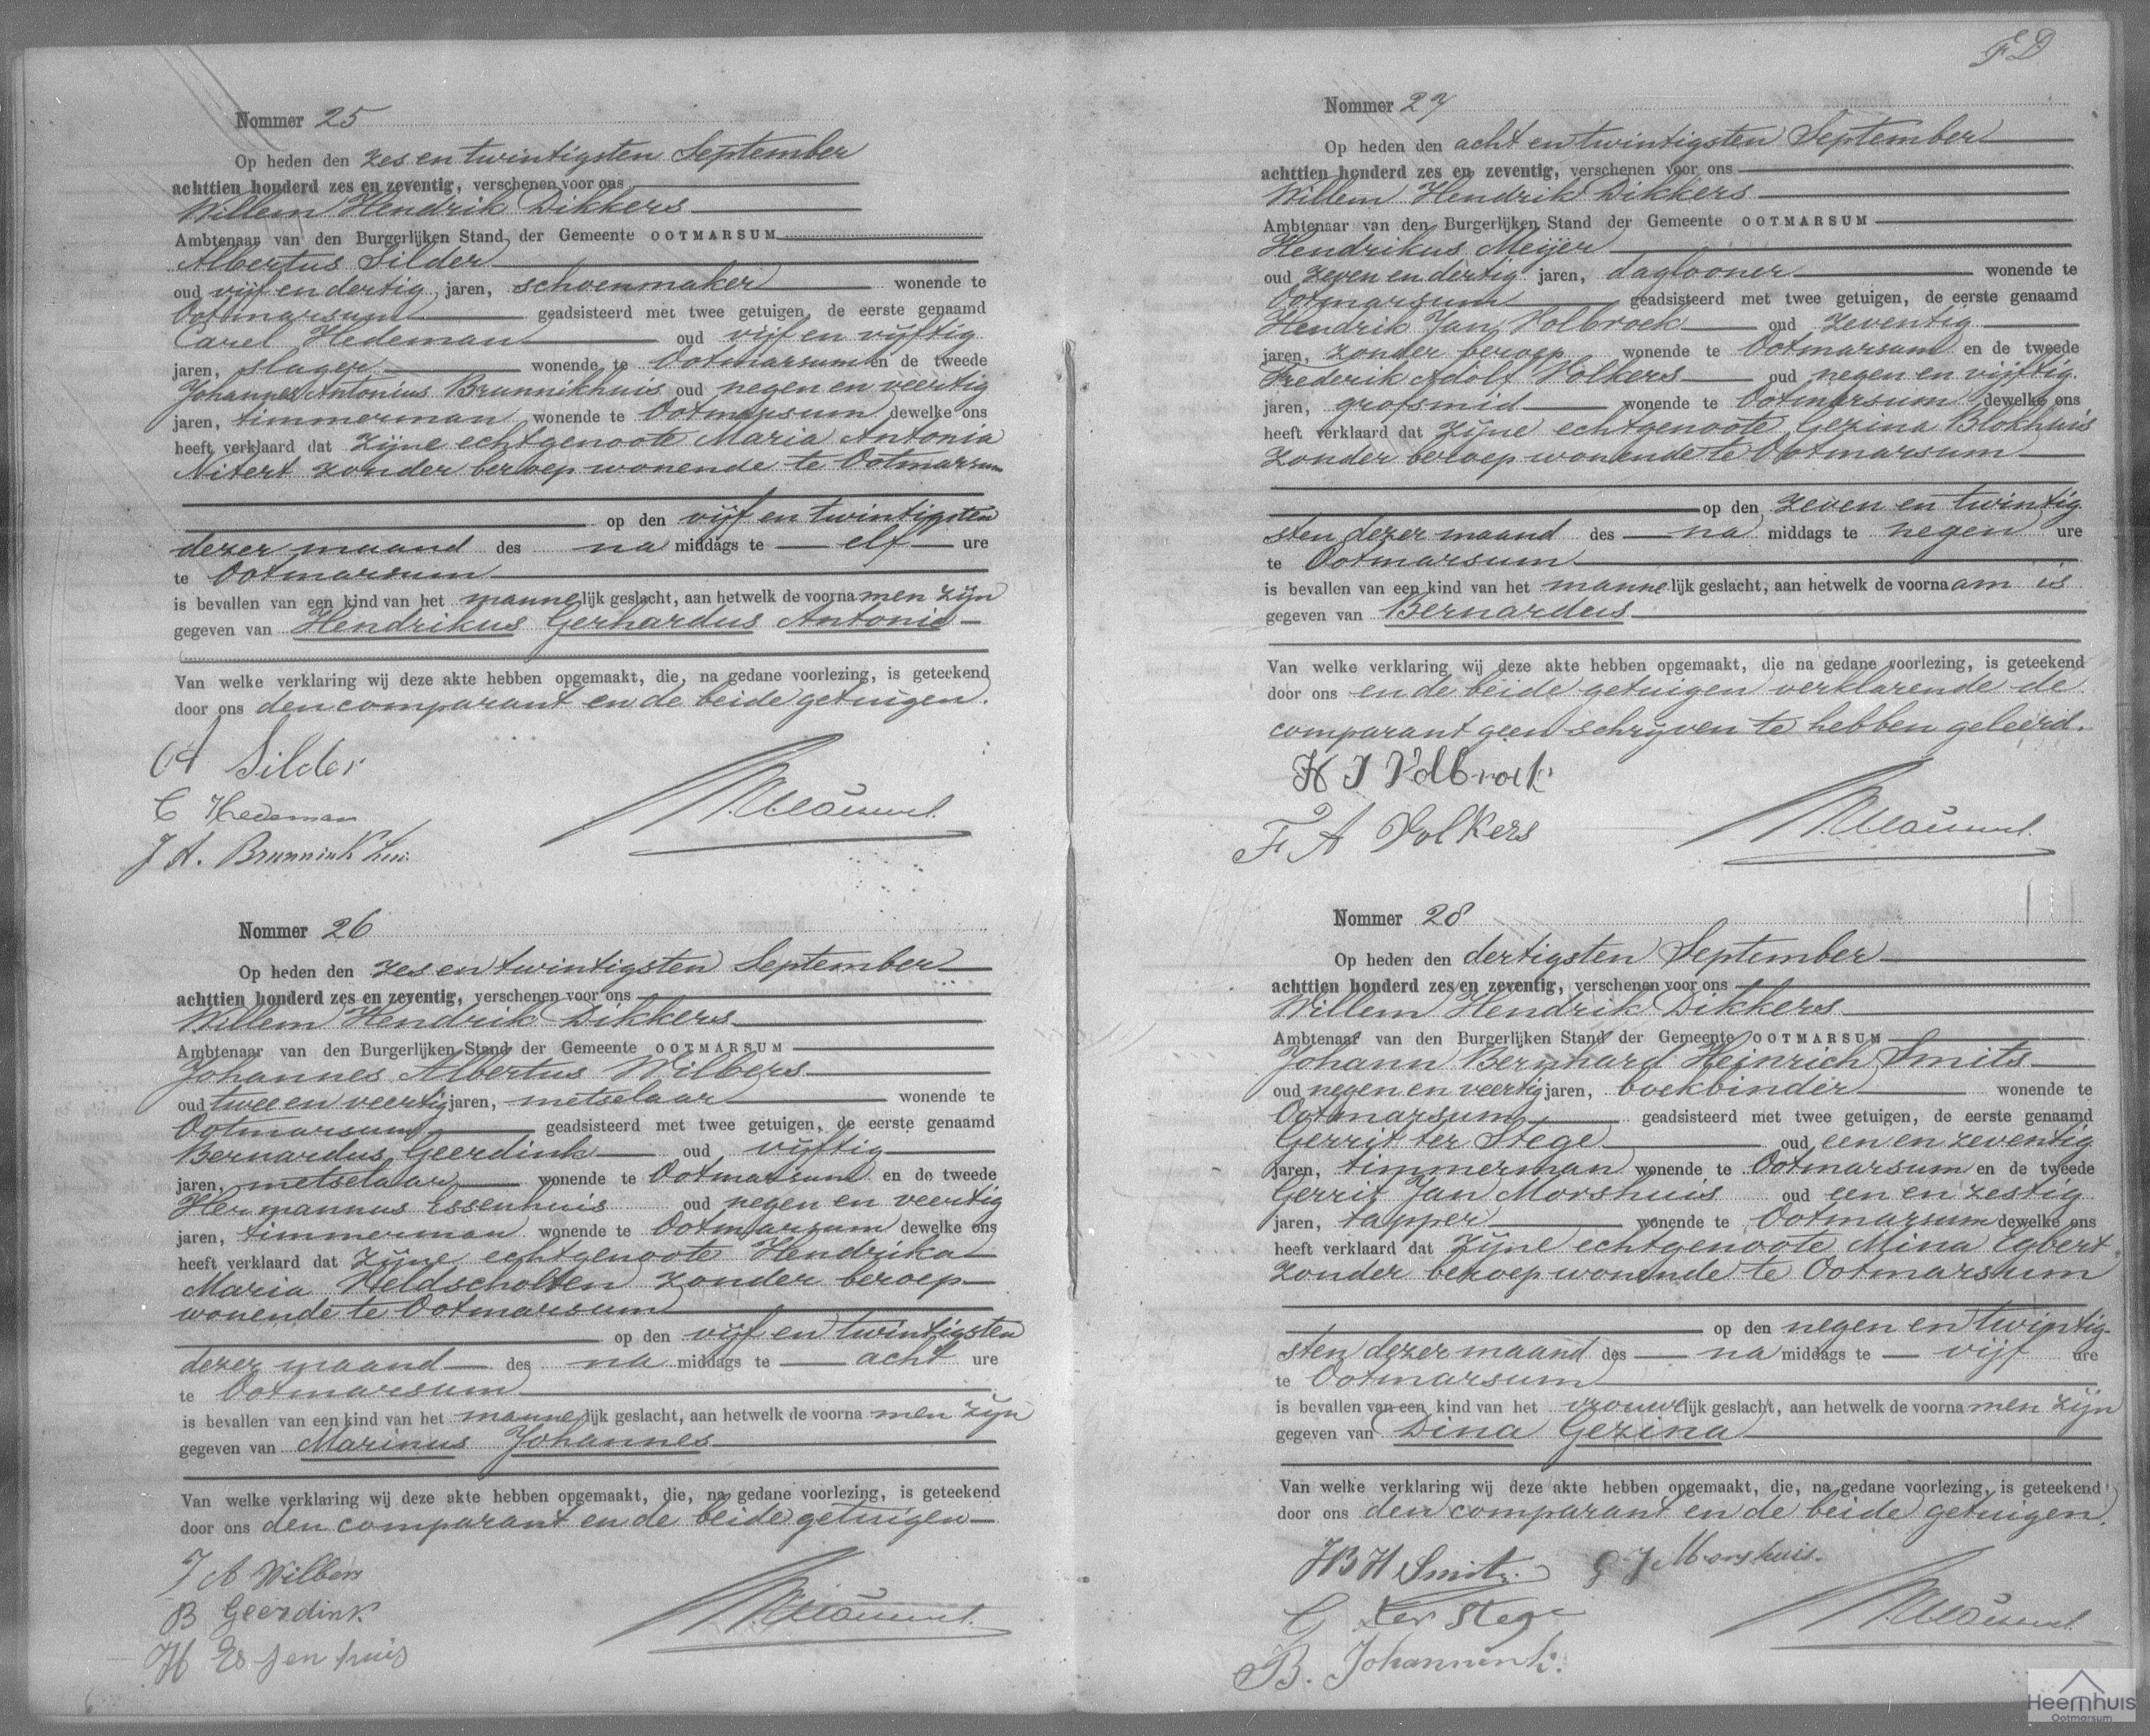 Nommer 25
Op heden den zes en twintigsten September
achttien honderd zes en zeventig, verschenen voor ons
Willem Hendrik Dikkers
Ambtenaar van den Burgerlijken Stand der Gemeente OOTMARSUM
Albertus Silder
oud vijf en dertig jaren, schoenmaker wonende te
Ootmarsum geadsisteerd met twee getuigen, de eerste genaamd
Carel Hedeman oud vijf en vijftig
jaren, slager wonende te Ootmarsum en de tweede
Johannes Antonius Brunnikhuis oud negen en veertig
jaren, timmerman wonende te Ootmarsum dewelke ons
heeft verklaard dat zijne echtgenoote Maria Antonia
Nitert zonder beroep wonende te Ootmarsum
op den vijf en twintigsten
dezer maand des na middags te elf ure
te Ootmarsum
is bevallen van een kind van het mannelijk geslacht, aan hetwelk de voornamen zijn
gegeven van Hendrikus Gerhardus Antonie
Van welke verklaring wij deze akte hebben opgemaakt, die, na gedane voorlezing, is geteekend
door ons den comparant en de beide getuigen.
A Silder
C Hedeman
J A. Brunninkhuis
Nommer 26
Op heden den zes en twintigsten September
achttien honderd zes en zeventig, verschenen voor ons
Willem Hendrik Dikkers
Ambtenaar van den Burgerlijken Stand der Gemeente OOTMARSUM
Johannes Albertus Wilbers
oud twee en veertig jaren, metselaar wonende te
Ootmarsum geadsisteerd met twee getuigen, de eerste genaamd
Bernardus Geerdink oud vijftig
jaren, metselaar wonende te Ootmarsum en de tweede
Hermannus Essenhuis oud negen en veertig
jaren, timmerman wonende te Ootmarsum dewelke ons
heeft verklaard dat zijne echtgenoote Hendrika
Maria Heldscholten zonder beroep
wonende te Ootmarsum
op den vijf en twintigsten
dezer maand des na middags te acht ure
te Ootmarsum
is bevallen van een kind van het mannelijk geslacht, aan hetwelk de voornamen zijn
gegeven van Marinus Johannes
Van welke verklaring wij deze akte hebben opgemaakt, die, na gedane voorlezing, is geteekend
door ons den comparant en de beide getuigen
J A Wilbers
B Geerdink
H Essenhuis
Nommer 27
Op heden den acht en twintigsten September
achttien honderd zes en zeventig, verschenen voor ons
Willem Hendrik Dikkers
Ambtenaar van den Burgerlijken Stand der Gemeente OOTMARSUM
Hendrikus Meijer
oud zeven en dertig jaren, daglooner wonende te
Ootmarsum geadsisteerd met twee getuigen, de eerste genaamd
Hendrik Jan Volbroek oud zeventig
jaren, zonder beroep wonende te Ootmarsum en de tweede
Frederik Adolf Volkers oud negen en vijftig
jaren, grofsmid wonende te Ootmarsum dewelke ons
heeft verklaard dat zijne echtgenoote Gezina Blokhuis
zonder beroep wonende te Ootmarsum
op den zeven en twintig
sten dezer maand des na middags te negen ure
te Ootmarsum
is bevallen van een kind van het mannelijk geslacht, aan hetwelk de voornaam is
gegeven van Bernardus
Van welke verklaring wij deze akte hebben opgemaakt, die na gedane voorlezing, is geteekend
door ons en de beide getuigen verklarende de
comparant geen schrijven te hebben geleerd.
H J Volbroek
F A Volkers
Nommer 28
Op heden den dertigsten September
achttien honderd zes en zeventig, verschenen voor ons
Willem Hendrik Dikkers
Ambtenaar van den Burgerlijken Stand der Gemeente OOTMARSUM
Johann Bernhard Heinrich Smits
oud negen en veertig jaren, boekbinder wonende te
Ootmarsum geadsisteerd met twee getuigen, de eerste genaamd
Gerrit ter Stege oud een en zeventig
jaren, timmerman wonende te Ootmarsum en de tweede
Gerrit Jan Morshuis oud een en zestig
jaren, tapper wonende te Ootmarsum dewelke ons
heeft verklaard dat zijne echtgenoote Mina Egbert
zonder beroep wonende te Ootmarsum
op den negen en twintig-
sten dezer maand des na middags te vijf ure
te Ootmarsum
is bevallen van een kind van het vrouwelijk geslacht, aan hetwelk de voornamen zijn
gegeven van Dina Gezina
Van welke verklaring wij deze akte hebben opgemaakt, die, na gedane voorlezing, is geteekend
door ons den comparant en de beide getuigen.
Smits G J Morshuis.
G ter Stege
B. Johannink.
Heemhuis
Ootmarsum